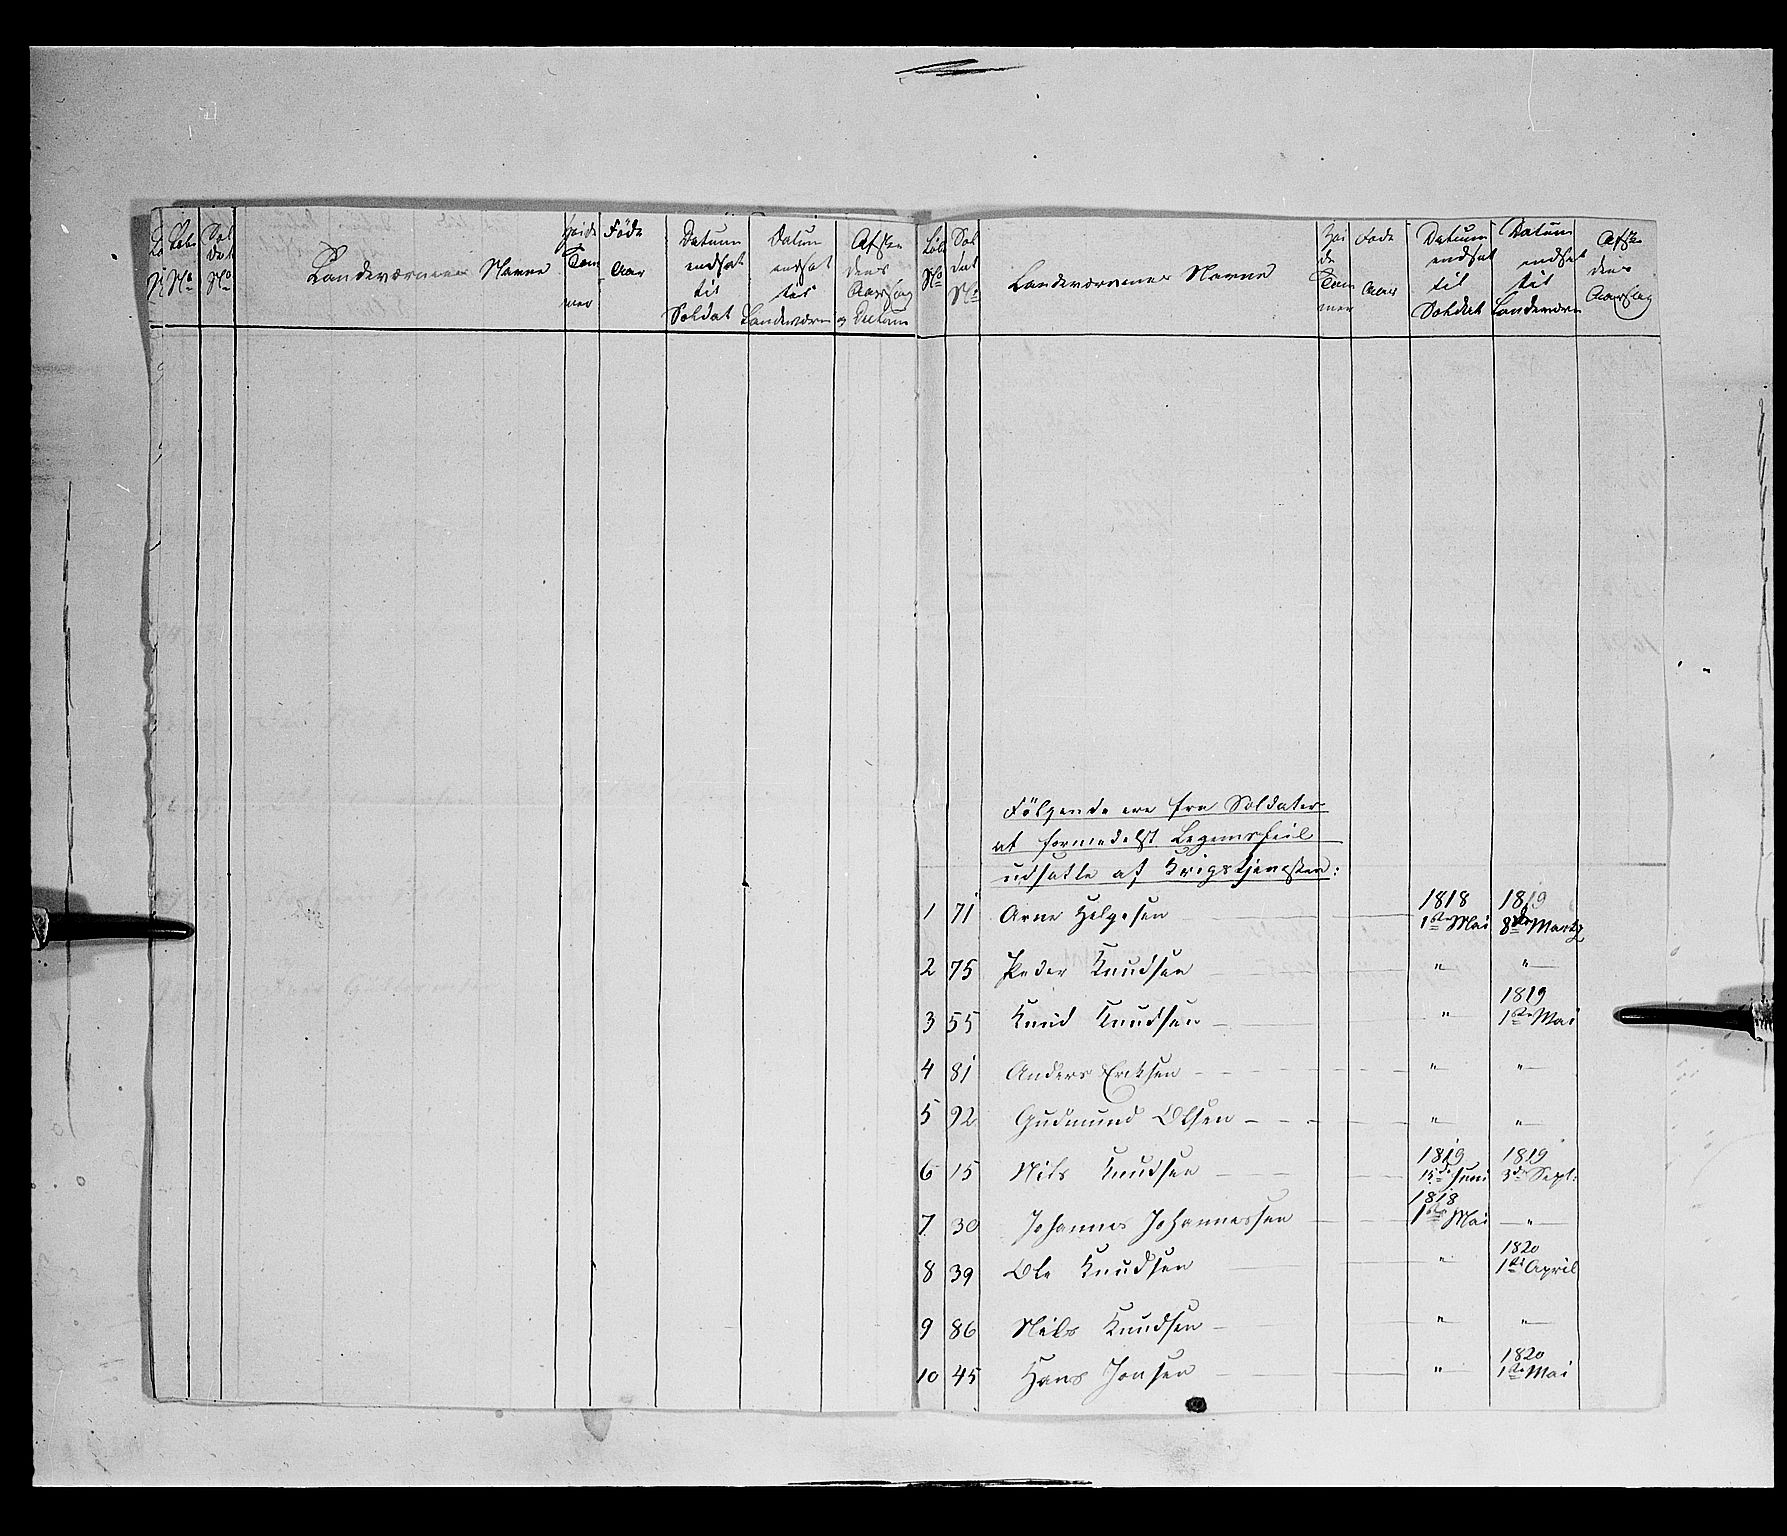 Sol
dat
No
Landeværnernes Navne
Høide
Tom
mer
Føde
Aar
Datum
endsat
til
Soldat
Datum
endsat
til
Landeværn
Afske
dens
Aarsag
og Datum
Løb
No
Sol
dat
No
Landeværnernes Navne
Høi
de
Tom
mer
Føde
Aar
Datum
endsat
til
Soldat
Datum
endsat
til
Landeværn
Afske
dens
Aarsag
Følgende ere fra Soldater
at formedelst Legemsfeil
udsatte af Krigstjenesten:
1 71 Arne Helgesen 1818 1ste Mai 1819 8de Martz
2 75 Peder Knudsen " "
3 55 Knud Knudsen " 1819 1ste Mai
4 81 Anders Ericksen " "
5 92 Gudmund Olsen " "
6 15 Nils Knudsen 1819 15de Juni 1819 3de Sept:
7 30 Johannes Johannessen 1818 1ste Mai "
8 39 Ole Knudsen " 1820 1ste April
9 86 Nils Knudsen " "
10 45 Hans Jonsen " 1820 1ste Mai